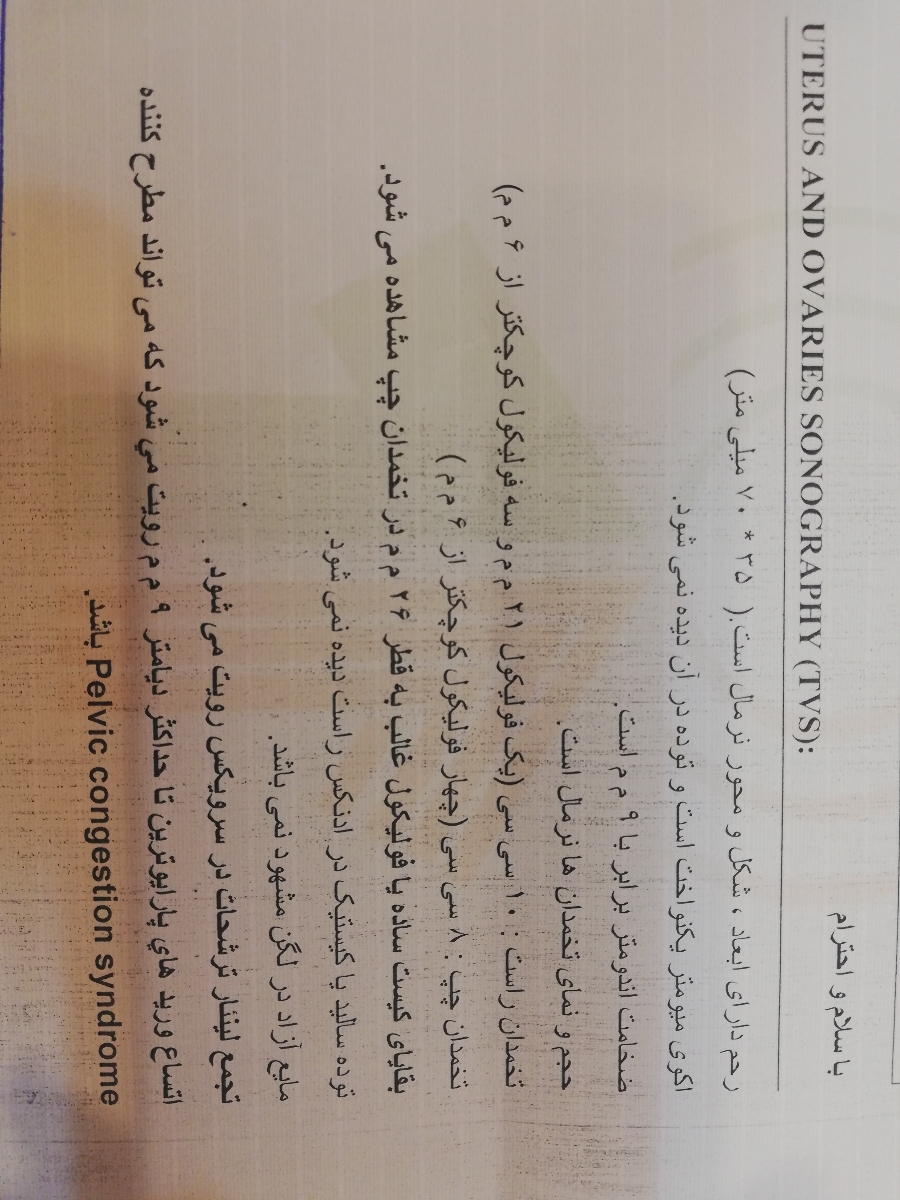 با سلام و احترام
UTERUS AND OVARIES SONOGRAPHY (TVS):
رحم دارای ابعاد ، شکل و محور نرمال است.( ۳۵ * ۷۰ میلی متر)
اکوی میومتر یکنواخت است و توده در آن دیده نمی شود.
ضخامت اندومتر برابر با ۹ م م است.
حجم و نمای تخمدان ها نرمال است.
تخمدان راست : ۱۰ سی سی (یک فولیکول ۲۱ م م و سه فولیکول کوچکتر از ۶ م م)
تخمدان چپ : ۸ سی سی (چهار فولیکول کوچکتر از ۶ م م )
بقایای کیست ساده یا فولیکول غالب به قطر ۲۶ م م در تخمدان چپ مشاهده می شود.
توده سالید یا کیستیک در ادنکس راست دیده نمی شود.
مایع آزاد در لگن مشهود نمی باشد.
تجمع لینئار ترشحات در سرویکس رویت می شود.
اتساع ورید هاي پارایوترین تا حداکثر دیامتر ۹ م م رویت مي شود که می تواند مطرح کننده
Pelvic congestion syndrome باشد.